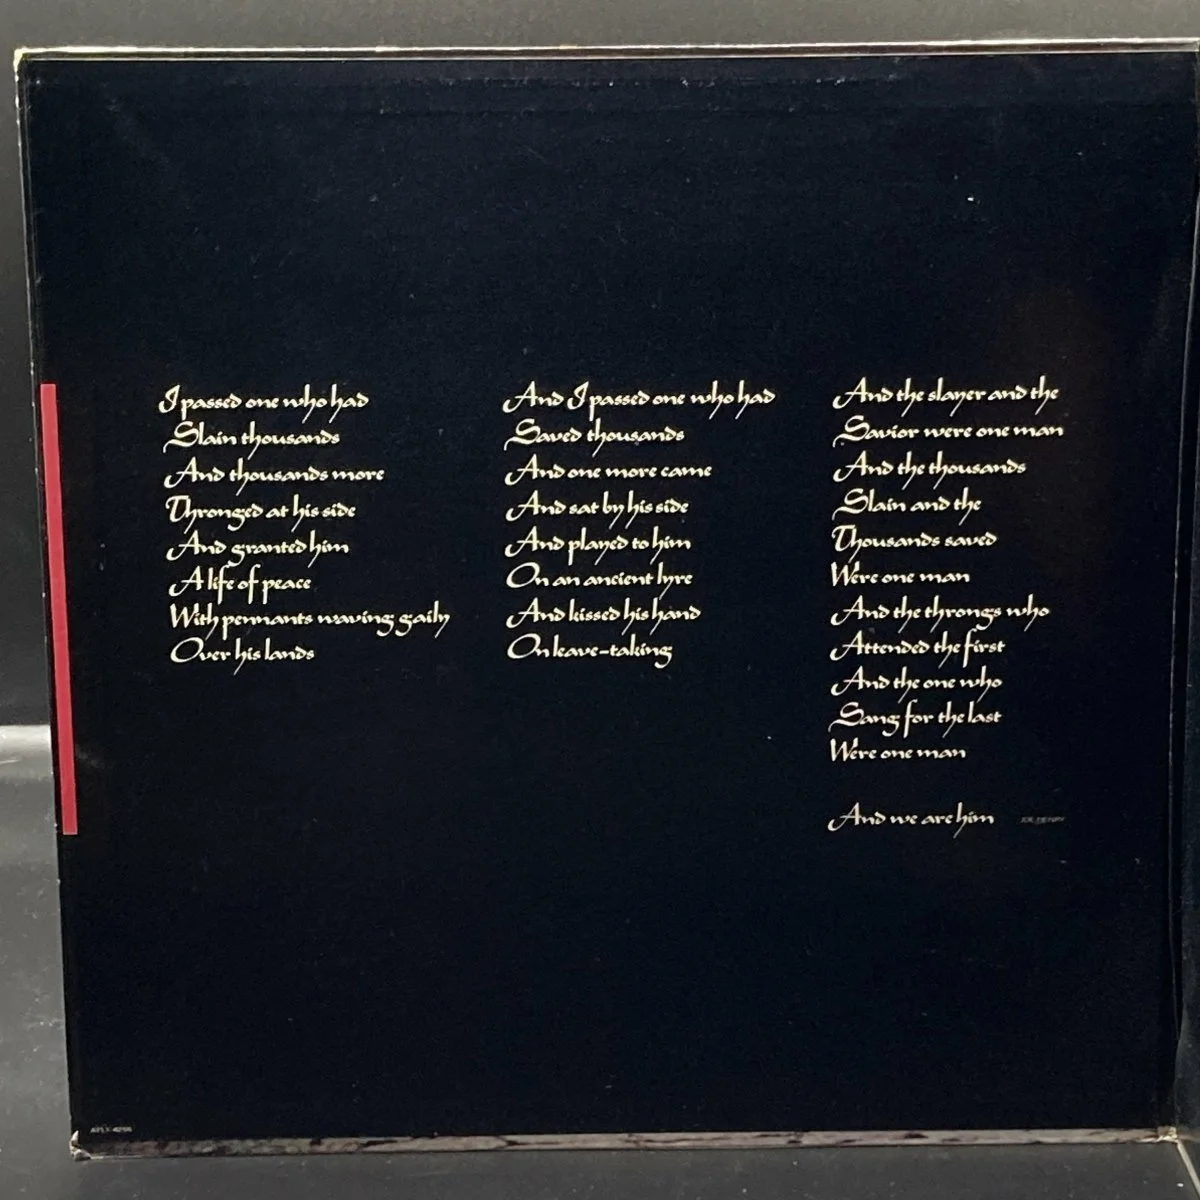 I passed one who had
Slain thousands
And thousands more
Thronged at his side
And granted him
A life of peace
With pennants waving gaily
Over his lands
And I passed one who had
Saved thousands
And one more came
And sat by his side
And played to him
On an ancient lyre
And kissed his hand
On leave-taking
And the slayer and the
Savior were one man
And the thousands
Slain and the
Thousands saved
Were one man
And the throngs who
Attended the first
And the one who
Sang for the last
Were one man
And we are him
JOE HENRY